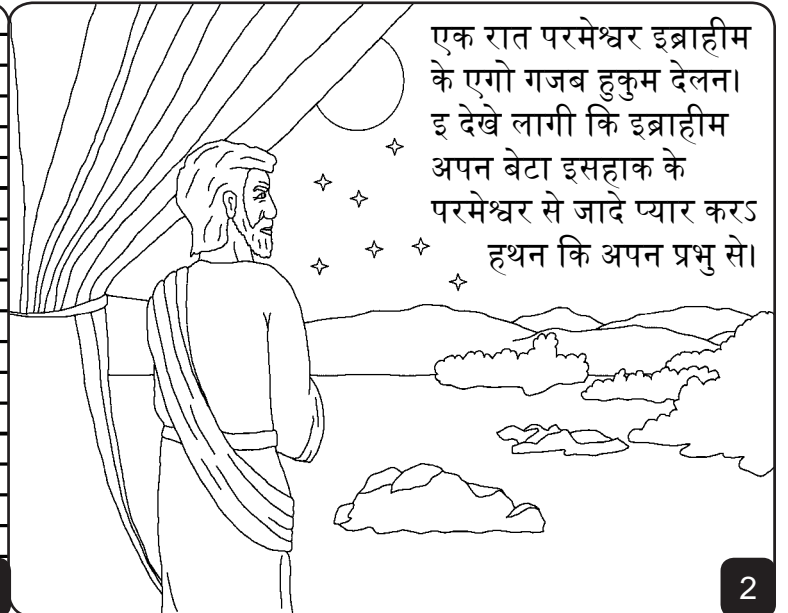 एक रात परमेश्वर इब्राहीम
के एगो गजब हुकुम देलन।
इ देखे लागी कि इब्राहीम
अपन बेटा इसहाक के
परमेश्वर से जादे प्यार करऽ
हथन कि अपन प्रभु से।
2